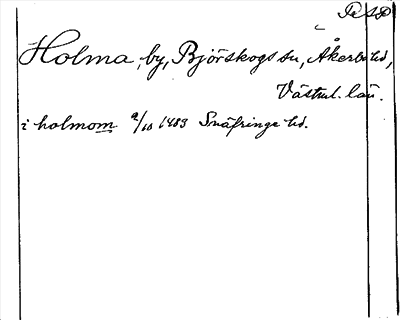 Holma, by, Björskogs sn, Åkerbo hd,
Västml. län.
i holmom 9/10 1483 Snäfringe hd.